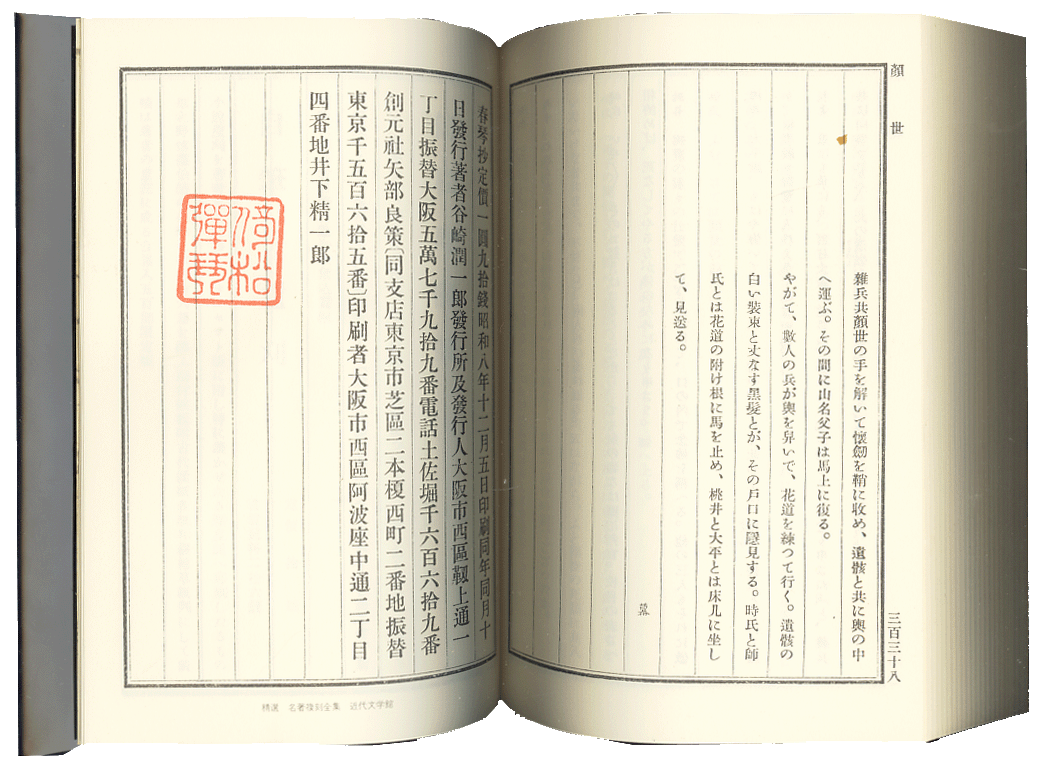 顏世
三百三十八
雜兵共顏世の手を解いて懷劒を鞘に收め、遺骸と共に輿の中
へ運ぶ。その間に山名父子は馬上に復る。
やがて、數人の兵が輿を舁いで、花道を練つて行く。遺骸の
白い裝束と丈なす黑髮とが、その戶口に隱見する。時氏と師
氏とは花道の附け根に馬を止め、桃井と大平とは床几に坐し
て、見送る。
幕
春琴抄定價一圓九拾錢昭和八年十二月五日印刷同年同月十
日發行著者谷崎潤一郎發行所及發行人大阪市西區靱上通一
丁目振替大阪五萬七千九拾九番電話土佐堀千六百六拾九番
創元社矢部良策〔同支店東京市芝區二本榎西町二番地振替
東京千五百六拾五番〕印刷者大阪市西區阿波座中通二丁目
四番地井下精一郎
倚松
彈琴
精選 名著復刻全集 近代文学館